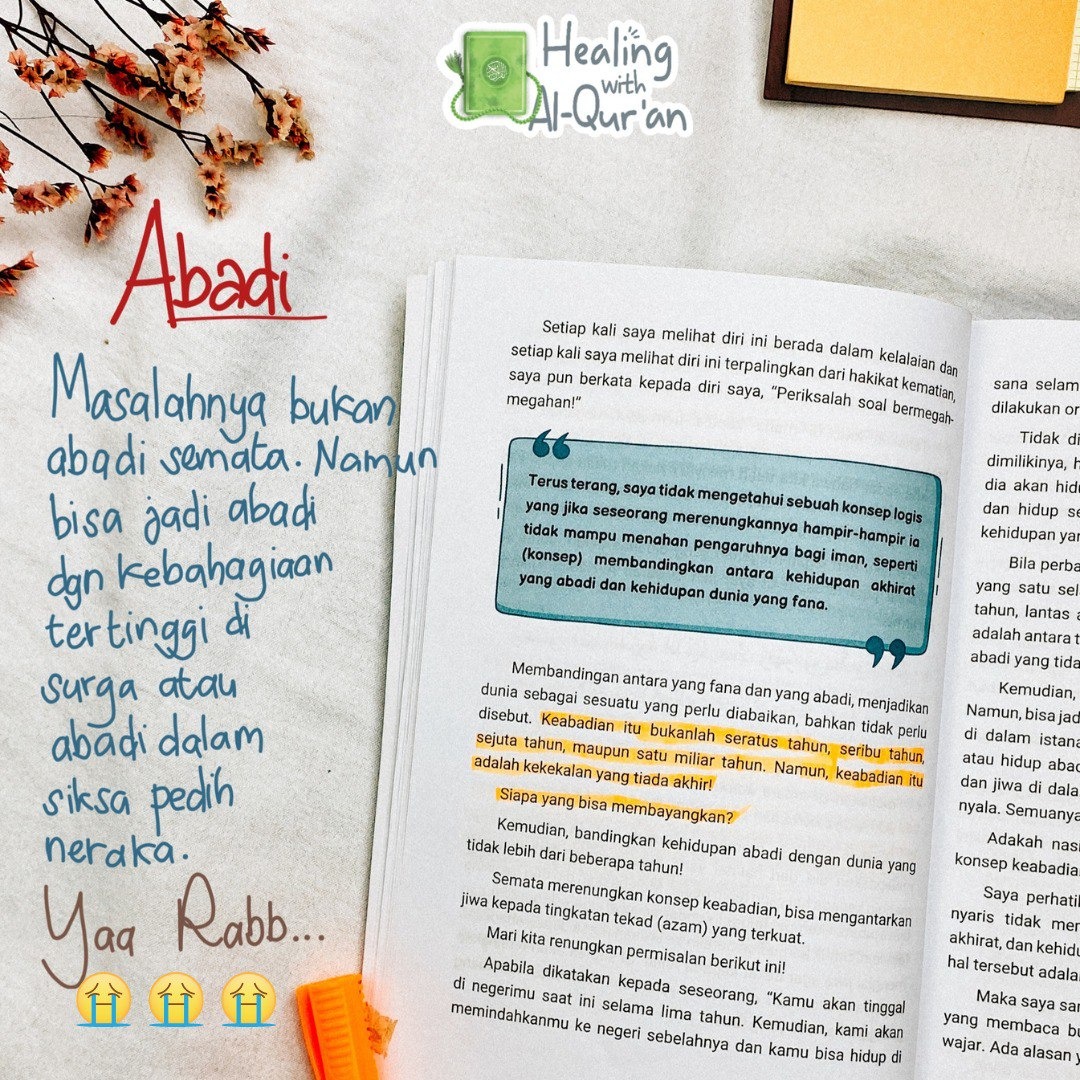 Healing
with
Al-Qur'an
Abadi
Masalahnya bukan
abadi semata. Namun
bisa jadi abadi
dgn kebahagiaan
tertinggi di
surga atau
abadi dalam
siksa pedih
neraka.
Yaa Rabb...
Setiap kali saya melihat diri ini berada dalam kelalaian dan
setiap kali saya melihat diri ini terpalingkan dari hakikat kematian,
saya pun berkata kepada diri saya, "Periksalah soal bermegah-
megahan!"
Terus terang, saya tidak mengetahui sebuah konsep logis
yang jika seseorang merenungkannya hampir-hampir ia
tidak mampu menahan pengaruhnya bagi iman, seperti
(konsep) membandingkan antara kehidupan akhirat
yang abadi dan kehidupan dunia yang fana.
Membandingan antara yang fana dan yang abadi, menjadikan
dunia sebagai sesuatu yang perlu diabaikan, bahkan tidak perlu
disebut. Keabadian itu bukanlah seratus tahun, seribu tahun,
sejuta tahun, maupun satu miliar tahun. Namun, keabadian itu
adalah kekekalan yang tiada akhir!
Siapa yang bisa membayangkan?
Kemudian, bandingkan kehidupan abadi dengan dunia yang
tidak lebih dari beberapa tahun!
Semata merenungkan konsep keabadian, bisa mengantarkan
jiwa kepada tingkatan tekad (azam) yang terkuat.
Mari kita renungkan permisalan berikut ini!
Apabila dikatakan kepada seseorang, "Kamu akan tinggal
di negerimu saat ini selama lima tahun. Kemudian, kami akan
memindahkanmu ke negeri sebelahnya dan kamu bisa hidup di
sana selam
dilakukan or
Tidak di
dimilikinya, h
dia akan hidu
dan hidup se
kehidupan yan
Bila perba
yang satu sel
tahun, lantas a
adalah antara t
abadi yang tida
Kemudian,
Namun, bisa jad
di dalam istana
atau hidup abad
dan jiwa di dala
nyala. Semuanya
Adakah nasi
konsep keabadia
Saya perhatik
nyaris tidak mer
akhirat, dan kehidu
hal tersebut adala
Maka saya sar
yang membaca bu
wajar. Ada alasan y